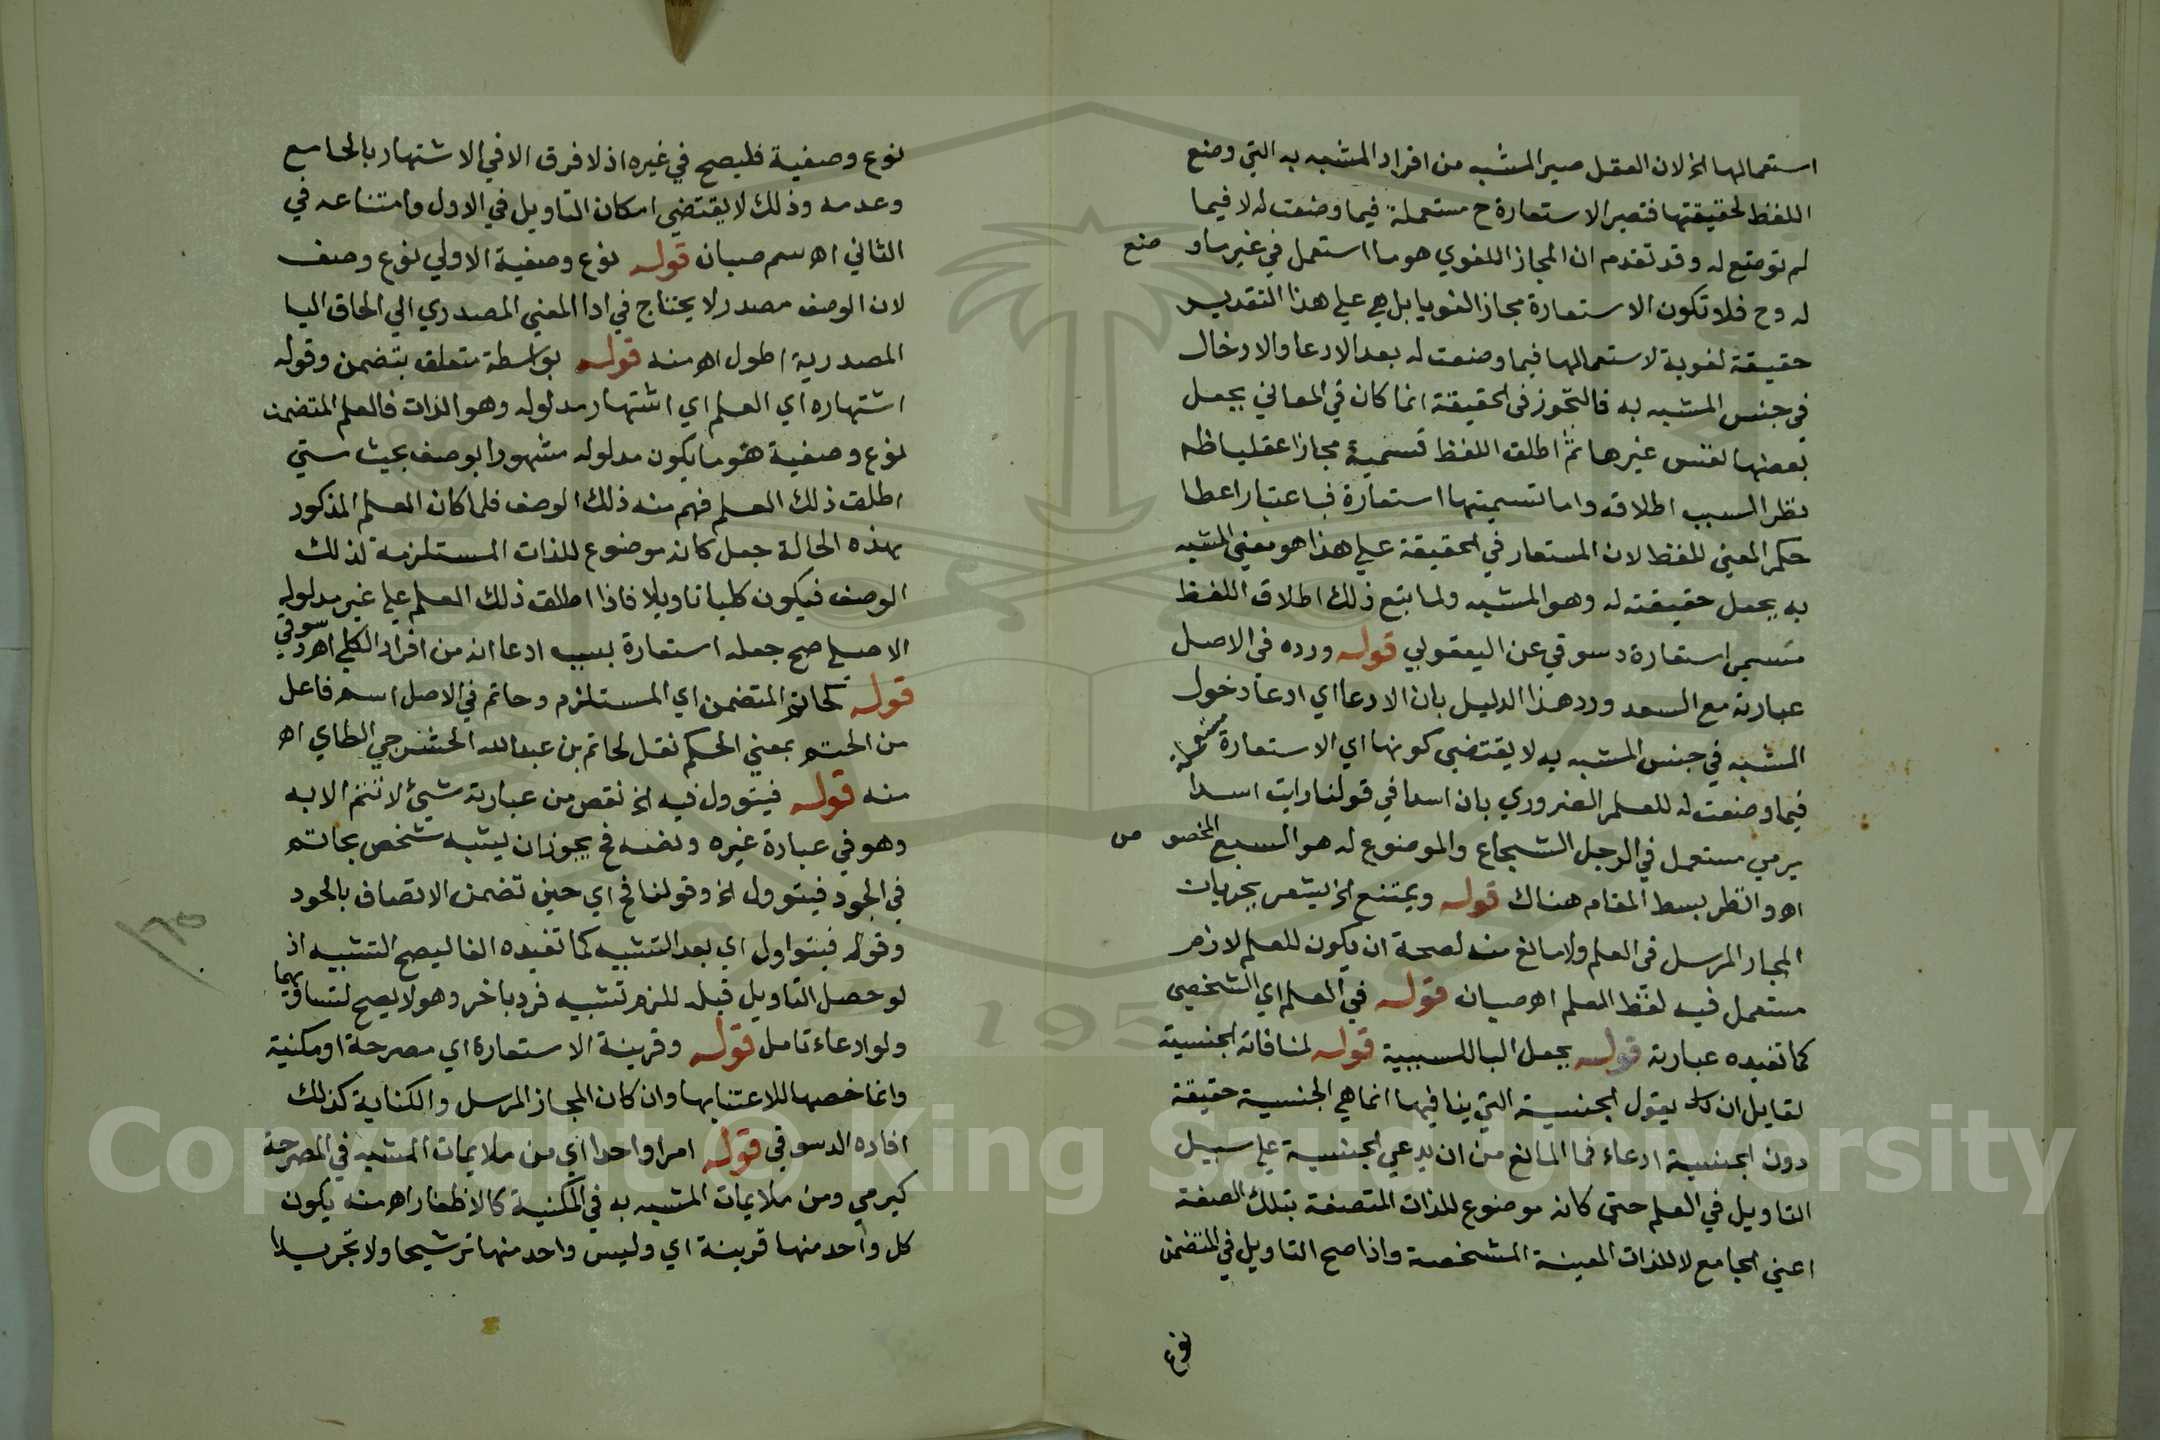 استعمالها الخ لان العقل صير المشبه من افراد المشبه به التي وضع
اللفظ لحقيقتها فتصير الاستعارة ح مستعملة فيما وضعت له لا فيما
لم توضع له وقد تقدم ان المجاز اللغوي هو ما استعمل في غير ما وضع
له وح فلا تكون الاستعارة مجازا لغويا بل هي علي هذا التقدير
حقيقة لغوية لاستعمالها فيما وضعت له بعد الادعا والادخال
في جنس المشبه به فالتجوز في الحقيقة انما كان في المعاني بجعل
بعضها نفس غيرها ثم اطلق اللفظ فتسميته مجازا عقليا ظه
نظرا لسبب اطلاقه واما تسميتها استعارة فباعتبار اعطا
حكم المعني للفظ لان المستعار في الحقيقة علي هذا هو معني المشبه
به بجعل حقيقته له وهو المشبه ولما تبع ذلك اطلاق اللفظ
سمي استعارة دسوقي عن اليعقوبي قوله ورده في الاصل
عبارته مع السعد ورد هذا الدليل بان الادعا اي ادعا دخول
المشبه في جنس المشبه به لا يقتضي كونها اي الاستعارة مستعملة
فيما وضعت له للعلم الضروري بان اسدا في قولنا رايت اسدا
يرمي مستعمل في الرجل الشجاع والموضوع له هو السبع المخصوص
اهـ وانظر بسط المقام هناك قوله ويمتنع الخ يشعر بجريان
المجاز المرسل في العلم ولا مانع منه لصحة ان يكون للعلم لازم
مستعمل فيه لفظ العلم اهـ صبان قوله في العلم اي الشخصي
كما تفيده عبارته قوله بجعل البا للسببية قوله لمنافاته الجنسية
لقايل ان يقول الجنسية التي ينافيها انما هي الجنسية حقيقة
دون الجنسية ادعاء فما المانع من ان يدعي الجنسية علي سبيل
التاويل في العلم حتي كانه موضوع للذات المتصفة بتلك الصفة
اعني الجامع لا للذات المعينة المشخصة واذا صح التاويل في المتضمن
نوع
نوع وصفية فليصح في غيره اذ لا فرق الا في الاشتهار بالجامع
وعدمه وذلك لا يقتضي امكان التاويل في الاول وامتناعه في
الثاني اهـ سم صبان قوله نوع وصفية الاولي نوع وصف
لان الوصف مصدر لا يحتاج في ادا المعني المصدري الي الحاق اليا
المصدرية اطول اهـ منه قوله بواسطة متعلق بتضمن وقوله
اشتهاره اي العلم اي اشتهار مدلوله وهو الذات فالعلم المتضمن
نوع وصفية هو ما يكون مدلوله مشهورا بوصف بحيث متي
اطلق ذلك العلم فهم منه ذلك الوصف فلما كان العلم المذكور
بهذه الحالة جعل كانه موضوع للذات المستلزمة لذلك
الوصف فيكون كليا تاويلا فاذا اطلق ذلك العلم علي غير مدلوله
الاصلي صح جعله استعارة بسبب ادعا انه من افراد الكلي اهـ دسوقي
قوله كحاتم المتضمن اي المستلزم وحاتم في الاصل اسم فاعل
من الحتم بمعني الحكم نقل لحاتم بن عبدالله الحشرجي الطاي اهـ
منه قوله فيتوول فيه الخ نقص من عبارته شيئ لا تتم الا به
وهو في عبارة غيره ونصه فح يجوز ان يشبه شخص بحاتم
في الجود فيتوول الخ وقولنا فح اي حين تضمن الاتصاف بالجود
وقوله فيتواول اي بعد التشبيه كما تفيده الفا ليصح التشبيه اذ
لو حصل التاويل قبله للزم تشبيه فرد باخر وهو لا يصح لتساويهما
ولو ادعاء تامل قوله وقرينة الاستعارة اي مصرحة او مكنية
وانما خصها للاعتنا بها وان كان المجاز المرسل والكناية كذلك
افاده الدسوقي قوله امرا واحدا اي من ملايمات المشبه في المصرحة
كيرمي ومن ملايمات المشبه به في المكنية كالاظفار اهـ منه يكون
كل واحد منها قرينة اي وليس واحد منها ترشيحا ولا تجريدا
1957
Copyright © King Saud University